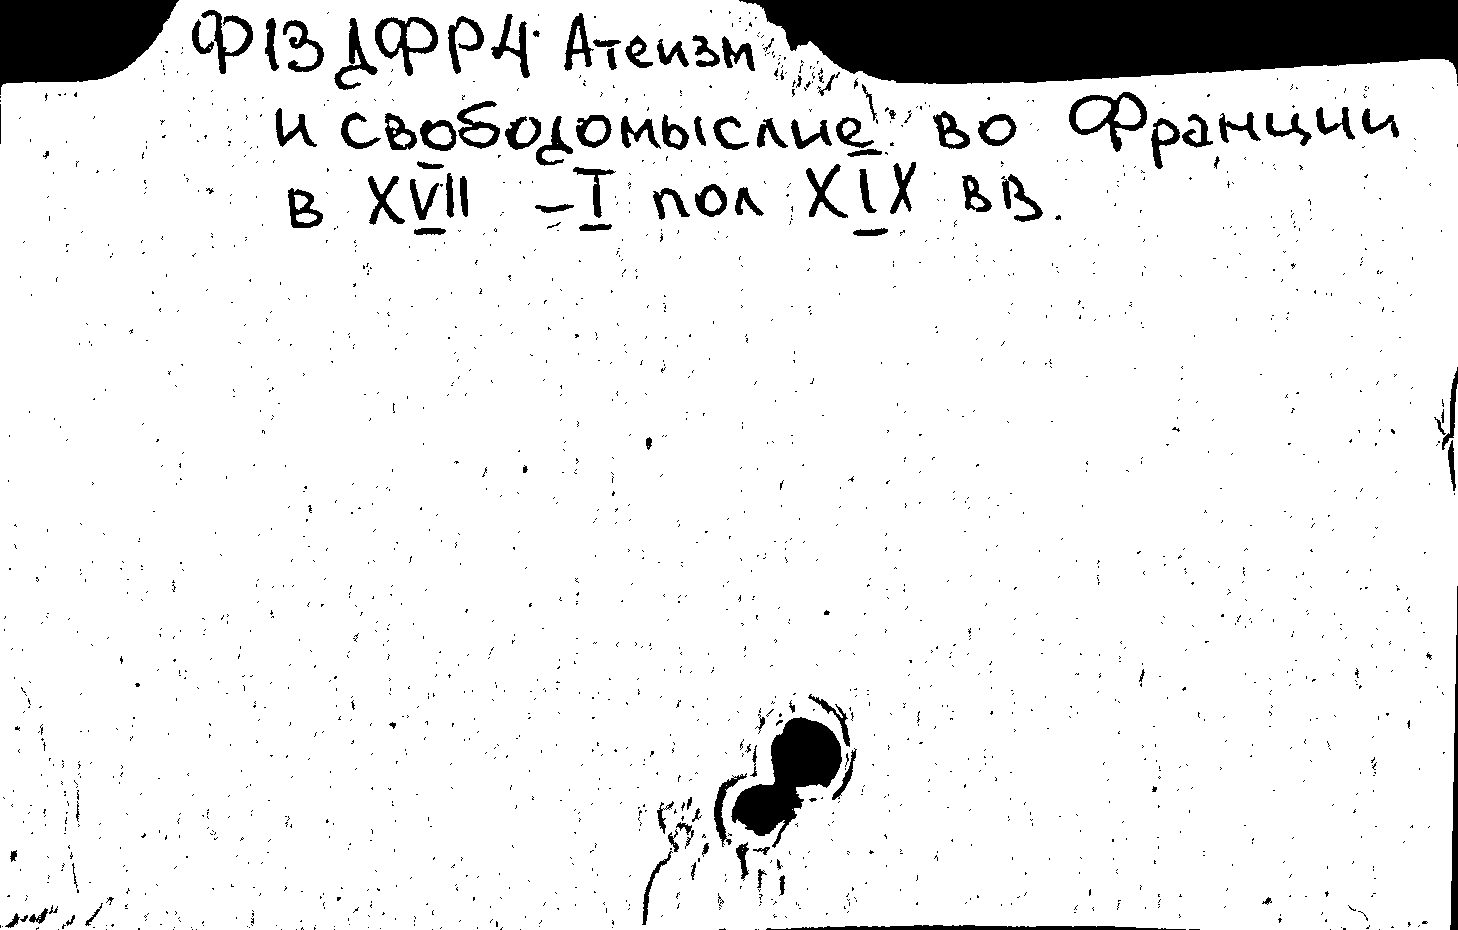 Ф13 дФР4. Атеизм
и свободомыслие во Франции
в XVII – I пол XIX вв.